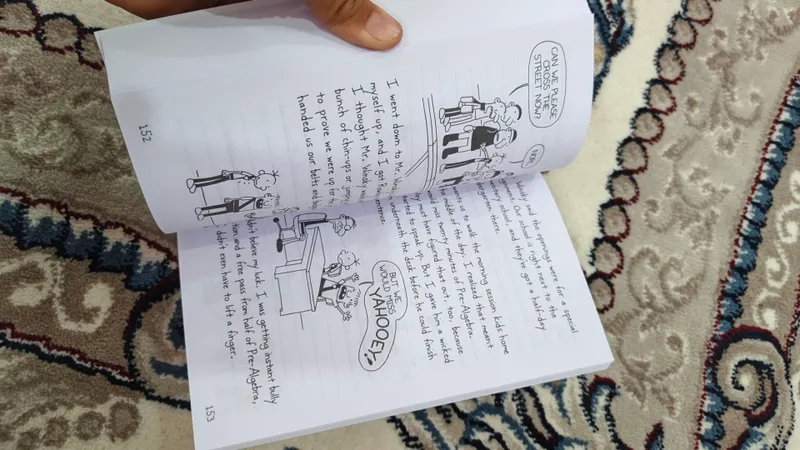 CAN WE PLEASE
CROSS THE
STREET NOW?
I went down to Mr.
myself up, and I got
I thought Mr. Winsky
bunch of chin-ups or
to prove we were up for
handed us our belts and
152
and the openings were for a special
Our school is right next to the
school, and they've got a half-day
there.
us to walk the morning session kids home
the middle of the day. I realized that meant
would miss twenty minutes of Pre-Algebra.
must have figured that out, too, because
to speak up. But I gave him a wicked
underneath the desk before he could finish
BUT WE
WOULD MISS
YAHOOIE!
believe my luck. I was getting instant bully
and a free pass from half of Pre-Algebra,
didn't even have to lift a finger.
153